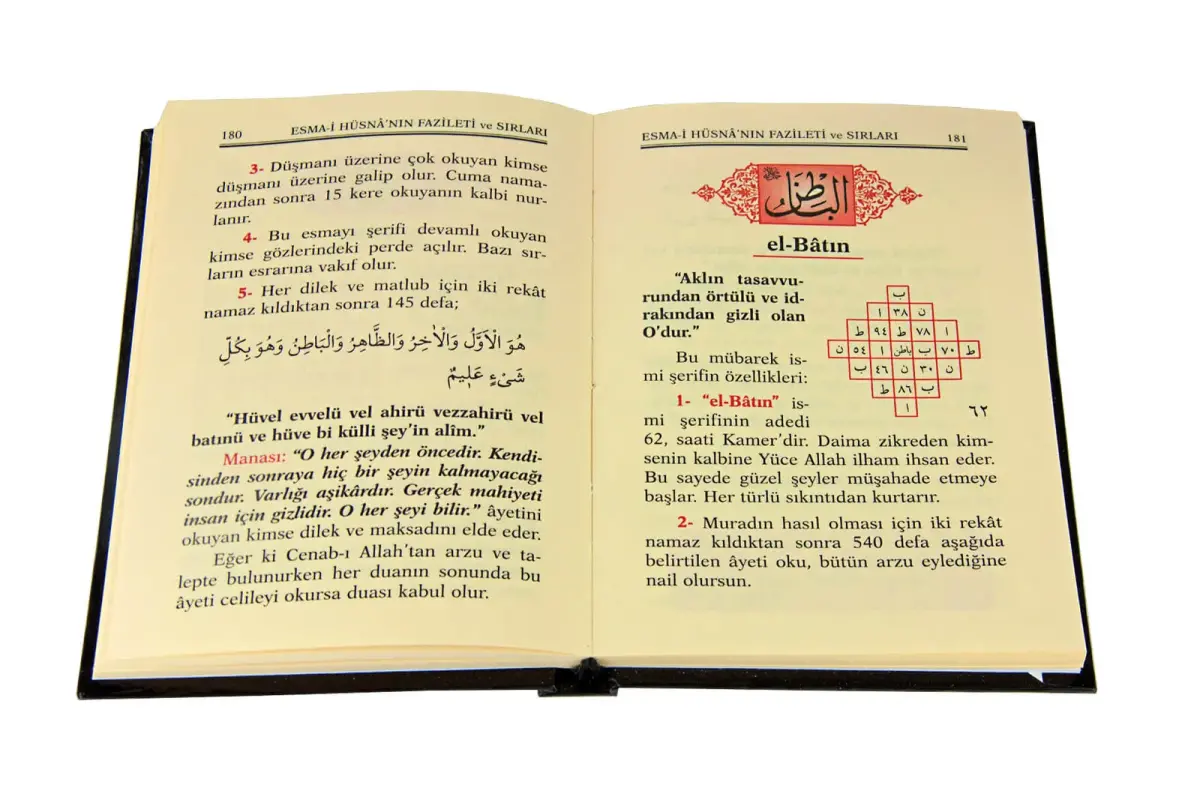 180 ESMA-İ HÜSNÂ'NIN FAZİLETİ ve SIRLARI
3- Düşmanı üzerine çok okuyan kimse
düşmanı üzerine galip olur. Cuma nama-
zından sonra 15 kere okuyanın kalbi nur-
lanır.
4- Bu esmayı şerifi devamlı okuyan
kimse gözlerindeki perde açılır. Bazı sır-
ların esrarına vakıf olur.
5- Her dilek ve matlub için iki rekât
namaz kıldıktan sonra 145 defa;
هُوَ الْاَوَّلُ وَالْاٰخِرُ وَالظَّاهِرُ وَالْبَاطِنُ وَهُوَ بِكُلِّ
شَىْءٍ عَلٖيمٌ
“Hüvel evvelü vel ahirü vezzahirü vel
batınü ve hüve bi külli şey'in alîm.”
Manası: “O her şeyden öncedir. Kendi-
sinden sonraya hiç bir şeyin kalmayacağı
sondur. Varlığı aşikârdır. Gerçek mahiyeti
insan için gizlidir. O her şeyi bilir.” âyetini
okuyan kimse dilek ve maksadını elde eder.
Eğer ki Cenab-ı Allah'tan arzu ve ta-
lepte bulunurken her duanın sonunda bu
âyeti celileyi okursa duası kabul olur.
ESMA-İ HÜSNÂ'NIN FAZİLETİ ve SIRLARI 181
الباطن
el-Bâtın
“Aklın tasavvu-
rundan örtülü ve id-
rakından gizli olan
O'dur.”
Bu mübarek is-
mi şerifin özellikleri:
1- “el-Bâtın” is-
mi şerifinin adedi
62, saati Kamer'dir. Daima zikreden kim-
senin kalbine Yüce Allah ilham ihsan eder.
Bu sayede güzel şeyler müşahade etmeye
başlar. Her türlü sıkıntıdan kurtarır.
2- Muradın hasıl olması için iki rekât
namaz kıldıktan sonra 540 defa aşağıda
belirtilen âyeti oku, bütün arzu eylediğine
nail olursun.
ب
ن ٣٨ ا
ا ٧٨ ط ٩٤ ط
ط ٧٠ ب باطن ا ٥٤ ن
ن ٣٠ ن ٤٦ ب
ب ٨٦ ط
ا
٦٢